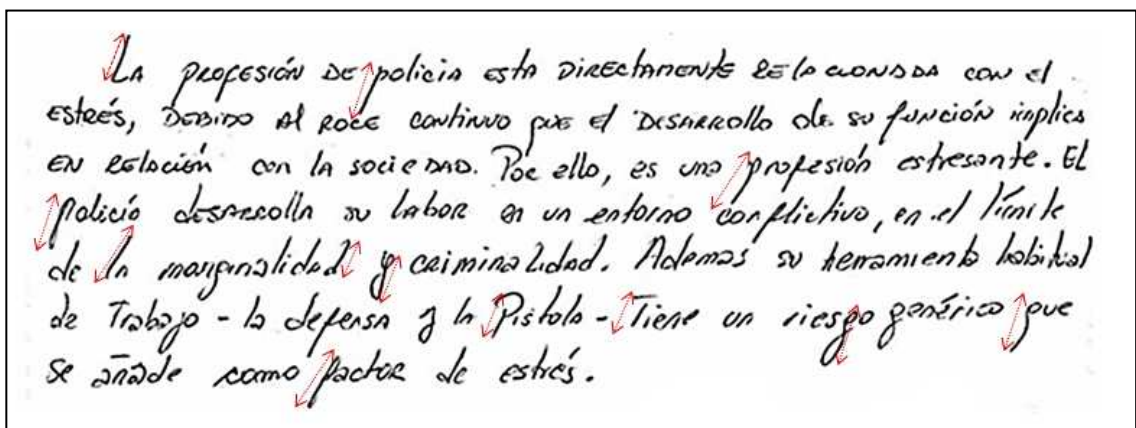 LA PROFESIÓN DE policia esta DIRECTAMENTE RELACIONADA con el
ESTRÉS, DEBIDO Al ROCE continuo que el DESARROLLO de su función implica
EN RELACIÓN con lA sociedad. Por ello, es una profesión estresante. El
policía desarrolla su labor en un entorno conflictivo, en el límite
de la marginalidad y criminalidad. Ademas su herramienta habitual
de Trabajo - la defensa y la Pistola - Tiene un riesgo genérico que
se añade como factor de estrés.